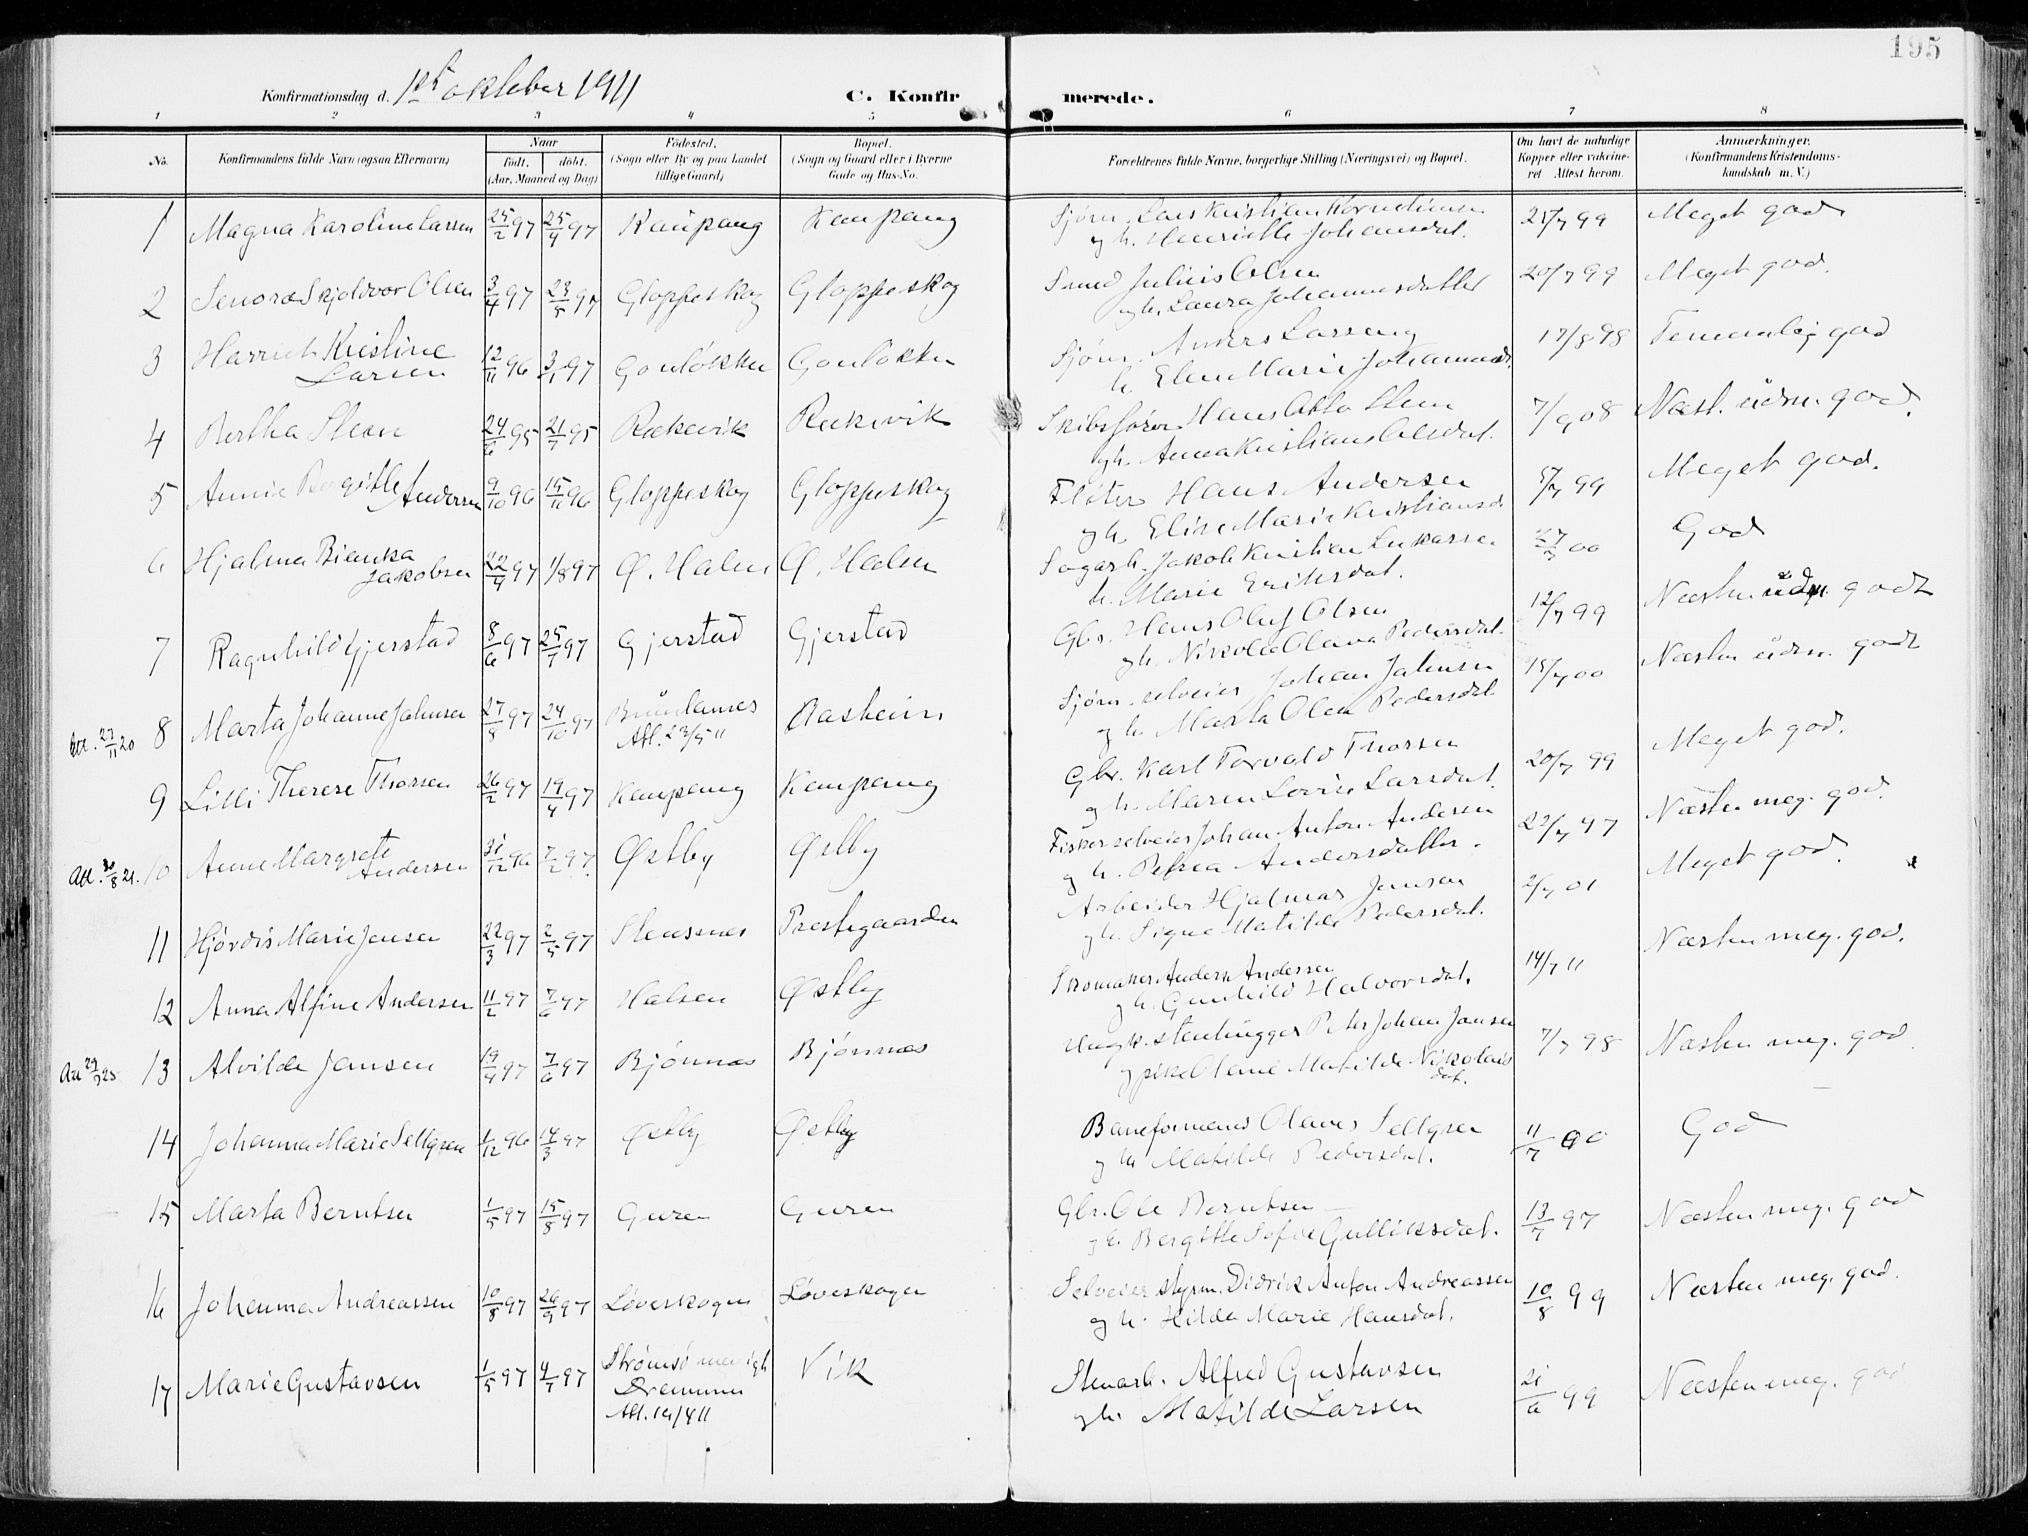 195
Konfirmationsdag d. 1ste oktober 1911
C. Konfirmerede.
1 2 3 4 5 6 7 8
No. Konfirmandens fulde Navn (ogsaa Efternavn) Naar født, døbt. (Aar, Maaned og Dag) Fødested. (Sogn eller By og paa Landet tillige Gaard) Bopæl. (Sogn og Gaard eller i Byerne Gade og Hus-No. Forældrenes fulde Navne, borgerlige Stilling (Næringsvei) og Bopæl. Om havt de naturlige Kopper eller vakcineret Attest herom. Anmærkninger. (Konfirmandens Kristendomskundskab m. V.)
1 Magna Karoline Larsen 25/2 97 25/4 97 Kaupang Kaupang Sjøm. Lars Kristian
og h. Henriette Johansdat. 25/7 99 Meget god
2 Senora Skjoldvor Olsen 3/4 97 23/5 97 Gloppeskog Gloppeskog Smed Julius Olsen
og h. Laura Johannesdatter 20/7 99 Meget god.
3 Harriet Kristine
Larsen 12/11 96 3/1 97 Gonløkka Gonløkka Sjøm. Anders Larsen og
h. Elen Marie 17/8 98 Temmelig god
4 Bertha Steen 24/6 95 21/7 95 Rækevik Rækevik Skibsfører Hans Otto Steen
og h. Anna Kristians Olsdat. 7/9 08 Næst. udm. god.
5 Annie Bergitte
Andersen 9/10 96 15/11 96 Gloppeskog Gloppeskog Fløter Hans Andersen
og h. Elise Marie Kristiansd. 5/7 99 Meget god.
6 Hjalma Bianka
Jakobsen 22/4 97 1/8 97 Ø. Halen Ø. Halen Sagarb. Jakob Kristian Lukassen
h. Marie Eriksdat. 27/7 00 God
7 Ragnhild Gjerstad 8/6 97 25/7 97 Gjerstad Gjerstad Gbr. Hans Oluf Olsen
og h. Nikolea Olava Pedersdat. 12/7 99 Næsten udm. godt
8 Marta Johanne Jahnsen 27/8 97 24/10 97 Brunlanes
Att. 23/5 11 Aasheim Sjøm. selveier Johan Jahnsen
og h. Marta Olea Pedersdat. 15/7 00 Næsten udm. godt
Att. 27/11 20
9 Lilli Therese Thorsen 26/2 97 19/4 97 Kaupang Kaupang Gbr. Karl Torvald Thorsen
og h. Maren Lovise Larsdat. 20/7 99 Meget god.
10 Anne Margrete
Andersen 31/12 96 7/2 97. Østby Østby Fisker selveier Johan Anton Andersen
og h. Petrea Andersdatter. 22/7 47 Næsten meg. god.
Att. 30/8 21.
11 Hjørdis Marie Jensen 22/3 97 2/5 97 Stensnes Prestegaarden Arbeider Hjalmar Jensen
og h. Signe Matilde Pedersdat. 2/7 01 Meget god.
12 Anna Alfine Andersen 11/2 97 7/6 97 Halsen Østby Skomaker Anders Andersen
og h. Gunhild Halvorsdat. 14/7 11 Næsten meg. god.
13 Alvilde Jansen 19/4 97 7/6 97 Bjønnæs Bjønnæs Ungk. stenhugger Peter Johan Jansen
og pike Olene Matilde Nikolais
dat. 7/7 98 Næsten meg. god
14 Johanna Marie Sellgren 1/12 96 14/3 97 Østby Østby Baneformand Olaves Sellgren
og h. Matilde Pedersdat. 11/7 00 God
15 Marta Berntsen 1/5 97 15/8 97 Guren Guren Gbr. Ole Berntsen
og h. Bergitte Sofie Gulliksdat. 13/7 97 Næsten meg. god
16 Johanna Andreassen 10/8 97 26/9 97 Løveskogen Løveskogen Selveier styrm. Didrik Anton Andreassen
og h. Hilda Marie Hansdat. 10/8 99 Næsten meg. god.
17 Marie Gustavsen 1/5 97 4/7 97 Strømsø menigh
Drammen
Att. 19/4 11 Vik Stenarb. Alfred Gustavsen
og h. Matilde Larsen 21/6 99 Næsten meg. god